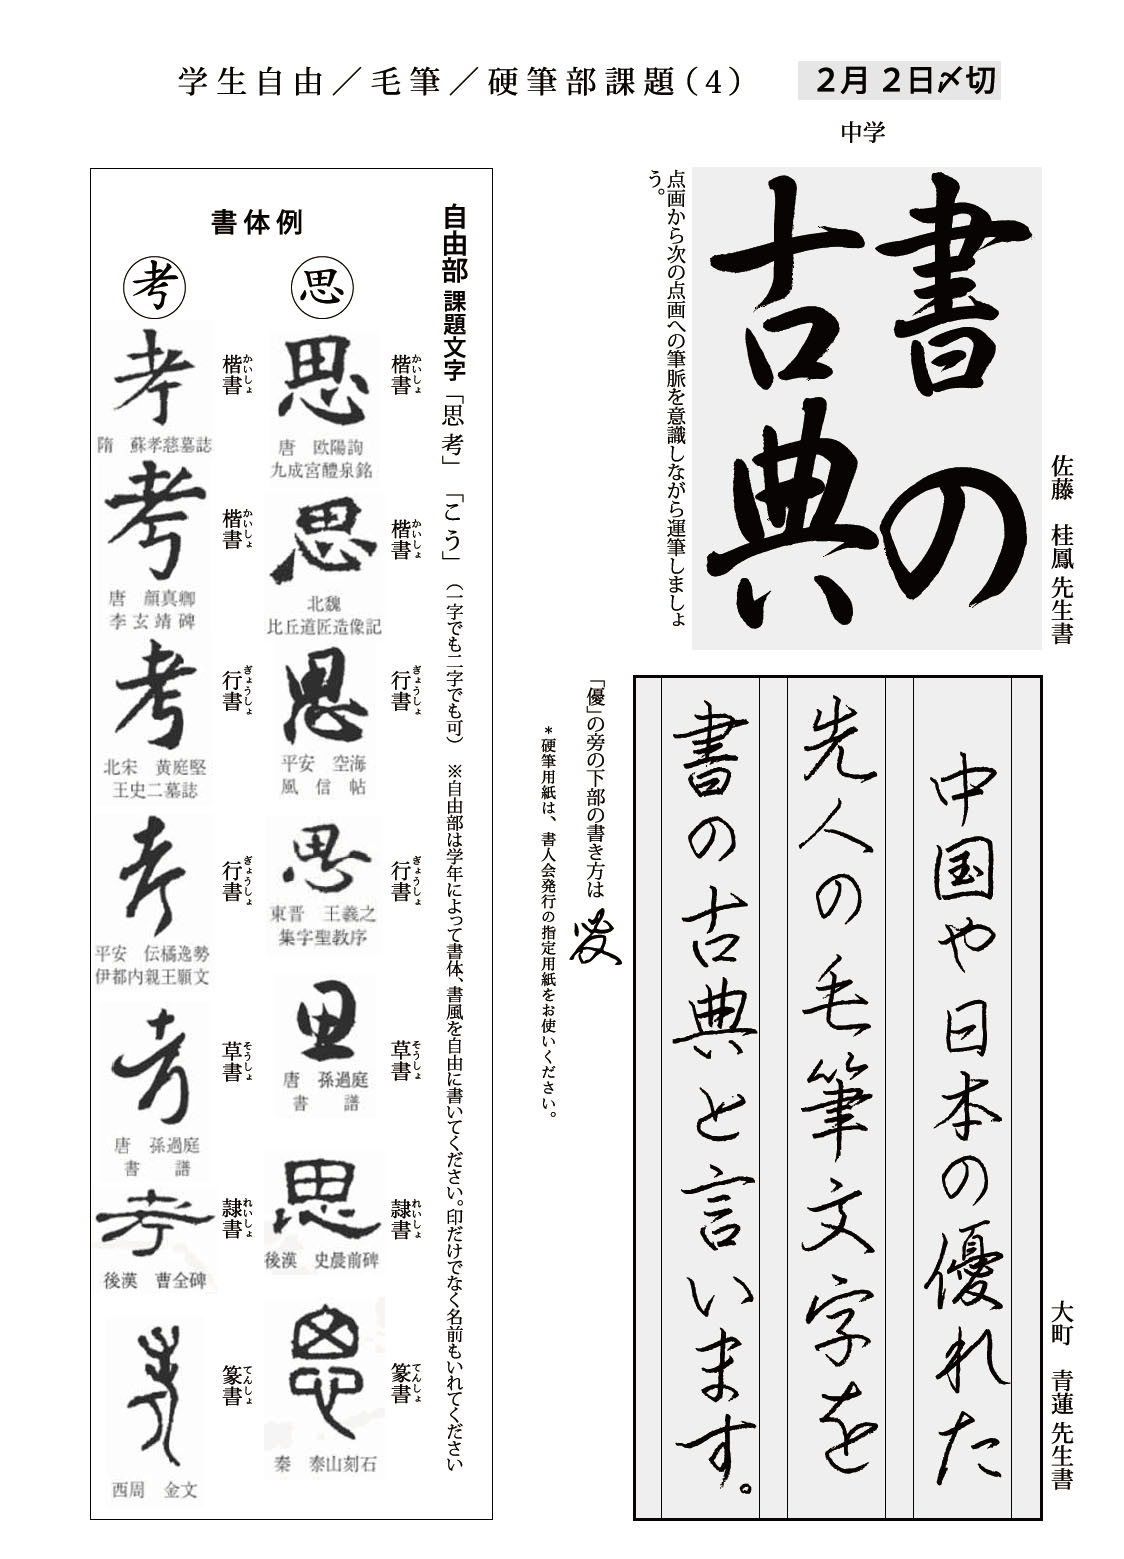 学生自由／毛筆／硬筆部課題(4)
２月２日〆切
中学
書の
古典
佐藤　桂鳳先生書
点画から次の点画への筆脈を意識しながら運筆しましょ
う。
中国や日本の優れた
先人の毛筆文字を
書の古典と言います。
大町　青蓮先生書
「優」の旁の下部の書き方は
＊硬筆用紙は、書人会発行の指定用紙をお使いください。
自由部 課題文字「思考」「こう」（一字でも二字でも可）※自由部は学年によって書体、書風を自由に書いてください。印だけでなく名前もいれてください
書体例
思
楷書
かいしょ
思
唐　欧陽詢
九成宮醴泉銘
楷書
かいしょ
思
北魏
比丘道匠造像記
行書
ぎょうしょ
思
平安　空海
風信帖
行書
ぎょうしょ
思
東晋　王羲之
集字聖教序
草書
そうしょ
思
唐　孫過庭
書譜
隷書
れいしょ
思
後漢　史晨前碑
篆書
てんしょ
思
秦　泰山刻石
考
楷書
かいしょ
考
隋　蘇孝慈墓誌
楷書
かいしょ
考
唐　顔真卿
李玄靖碑
行書
ぎょうしょ
考
北宋　黄庭堅
王史二墓誌
行書
ぎょうしょ
考
平安　伝橘逸勢
伊都内親王願文
草書
そうしょ
考
唐　孫過庭
書譜
隷書
れいしょ
考
後漢　曹全碑
篆書
てんしょ
考
西周　金文